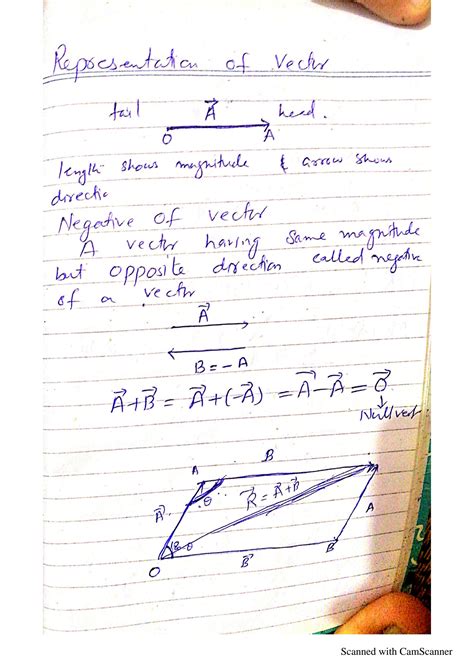 Representation of Vector
tail A⃗ head.
O A
length shows magnitude & arrow shows
directio
Negative of vector
A vector having same magnitude
but opposite direction called negative
of a vector
A⃗
B = -A
A⃗+B⃗ = A⃗+(-A⃗) = A⃗-A⃗ = O⃗
Null vect
A B
θ
A⃗ R⃗ = A⃗+B⃗ A
θ
O B⃗ B
Scanned with CamScanner